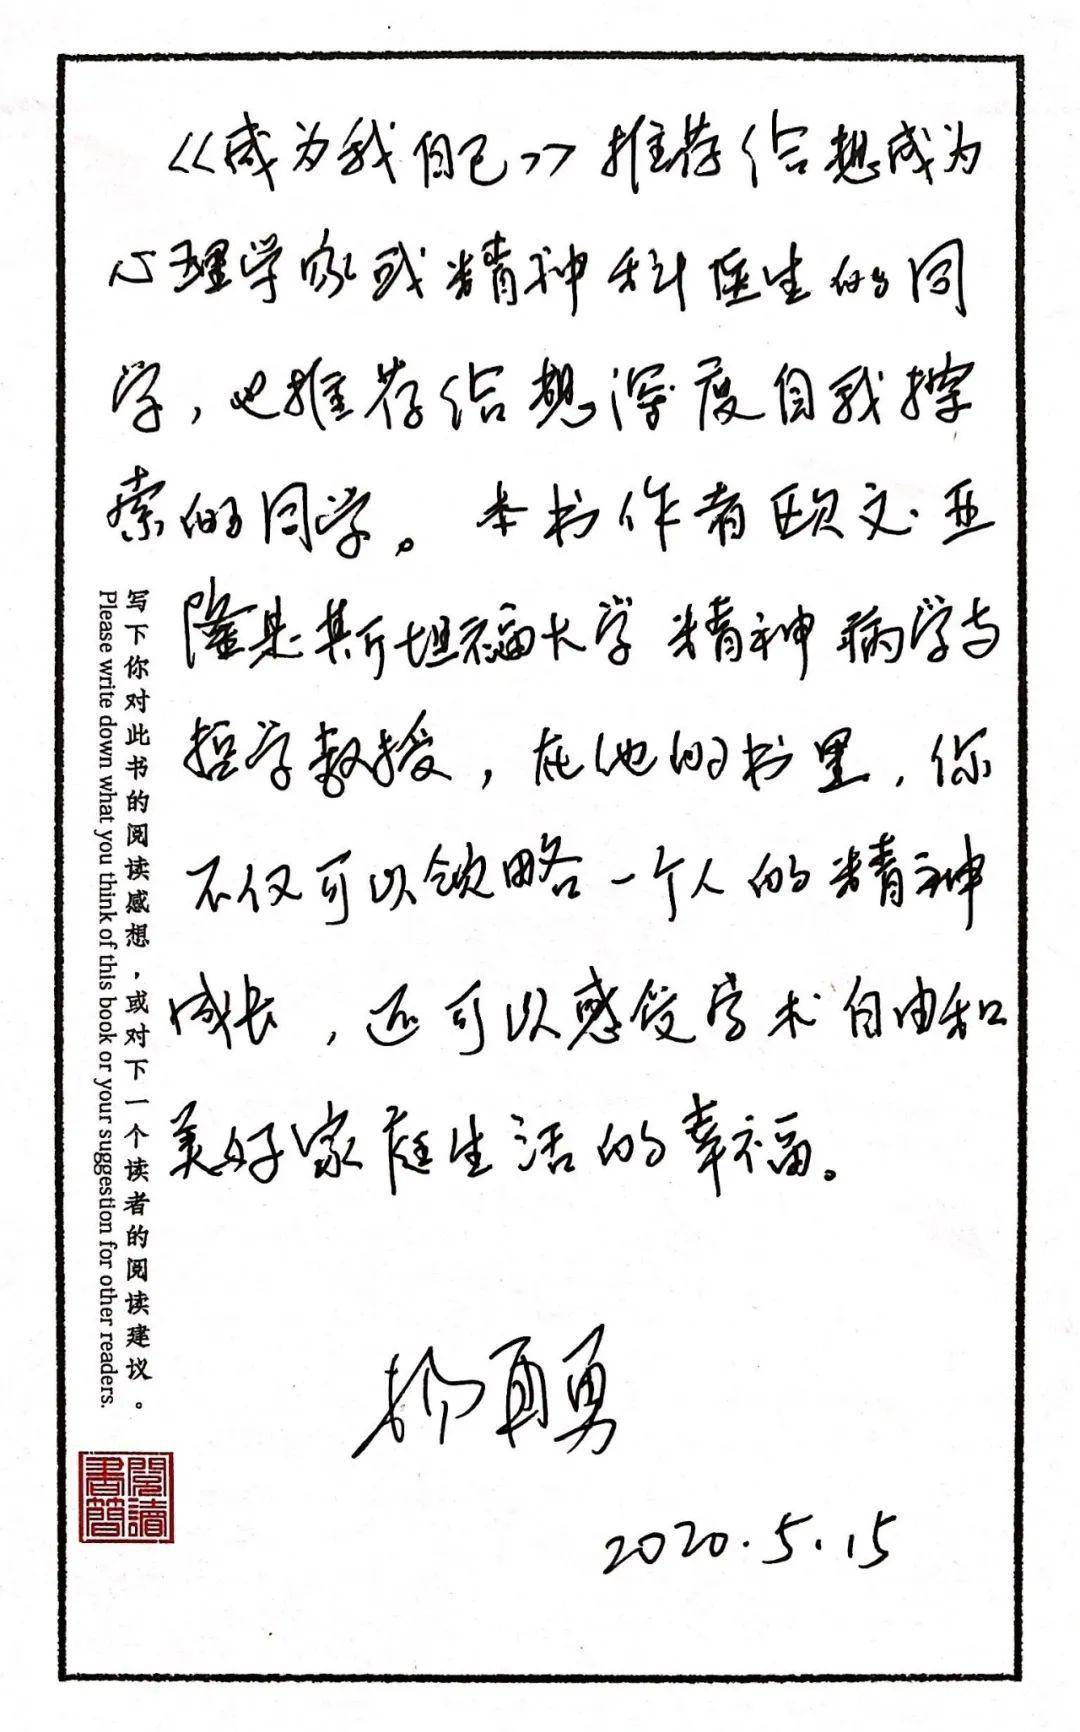 《成为我自己》推荐给想成为
心理学家或精神科医生的同
学，也推荐给想深度自我探
索的同学。本书作者欧文·亚
隆是斯坦福大学精神病学与
哲学教授，在他的书里，你
不仅可以领略一个人的精神
成长，还可以感受学术自由和
美好家庭生活的幸福。
杨再勇
2020.5.15
写下你对此书的阅读感想，或对下一个读者的阅读建议。
Please write down what you think of this book or your suggestion for other readers.
閱讀
書簡